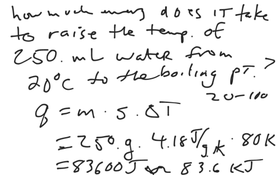 how much energy does it take
to raise the temp. of
250. mL water from
20°C to the boiling pt.?
20-100
q = m · s · ΔT
= 250. g. 4.18 J/gK · 80K
= 83600 J or 83.6 KJ